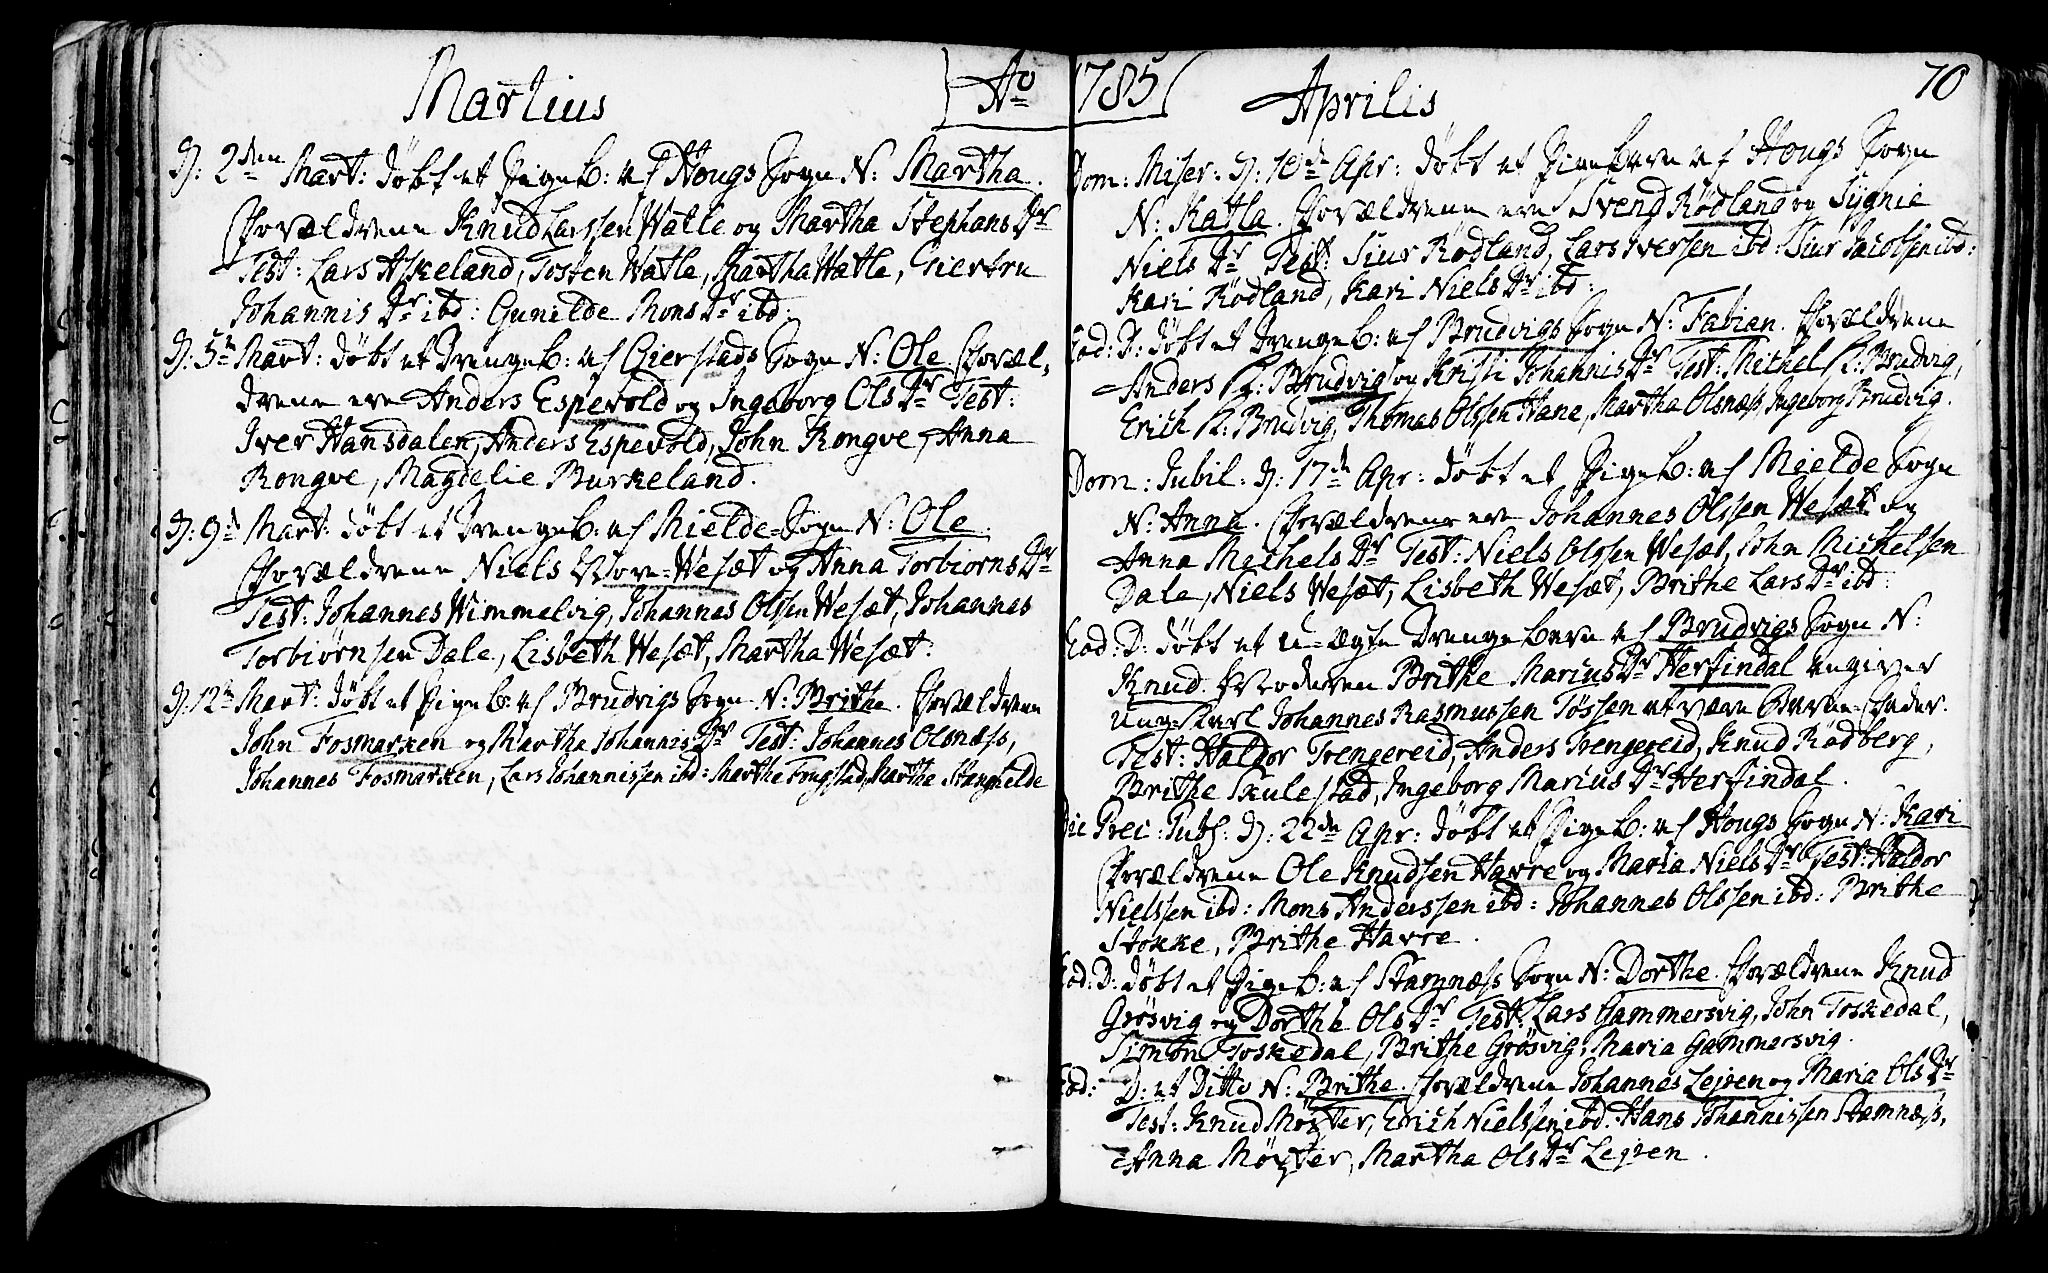 Martius
D: 2den Mart: døbt et Pigeb: af Hougs Sogn N: Martha.
Forældrene Knud Larssen Watle og Martha Stephans Dr
Test: Lars Askeland, Tosten Watle, Martha Watle, Giertru
Johannis Dr ibd: Gunilde Mons Dr ibd:
D: 5te Mart: døbt et Drengeb: af Gierstads Sogn N: Ole Foræl-
drene ere Anders Espevold og Ingeborg Ols Dr Test:
Iver Hansdalen, Anders Espevold, John Rongve, Anna
Rongve, Magdelie Burkeland.
D: 9de Mart: døbt et Drengeb: af Mielde Sogn N: Ole.
Forældrene Niels Wesæt og Anna Torbiorns Dr
Test: Johannes Wimmelvig, Johannes Olssen Wesæt, Johannes
Torbiørnsen Dale, Lisbeth Wesæt, Martha Wesæt:
D: 12te Mart: døbt et Pigeb: af Brudvigs Sogn N: Brithe. Forældrene
John Fosmarken og Martha Johannis Dr Test: Johannes Olsnæss,
Johannes Fosmarken, Lars Johannissen ibd: Marthe Marthe Stanghelde
Ao 1785
Aprilis
70
Dom: Miser: D: 10de Apr: døbt et Pigebarn af Hougs Sogn
N: Katla. Forældrene ere Svend Rødland og Sygnie
Niels Dr Test: Siur Rødland, Lars Iversen ibd: Siur Jacobsen ibd:
Kari Rødland, Kari Niels Dr ibd:
Eod: D: døbt et Drengeb: af Brudvigs Sogn N: Fabian. Forældrene
Anders R: Brudvig og Kristi Johannis Dr Test: Michel R: Brudvig,
Erich R: Brudvig, Thomas Olssen Hane, Martha Olsnæss, Ingeborg Brudvig.
Dom: Jubil: D: 17de Apr: døbt et Pigeb: af Mielde Sogn
N: Anna. Forældrene ere Johannes Olssen Wesæt og
Anna Michels Dr Test: Niels Olssen Wesæt, John Michelsen
Dale, Niels Wesæt, Lisbeth Wesæt, Brithe Lars Dr ibd:
Eod: D: døbt et u-ægte Drengebarn af Brudvigs Sogn N:
Knud. Moderen Brithe Marius Dr Herfindal angiver
unge Karl Johannes Rasmussen Tøssen at være Barne-Fader.
Test: Haldor Trengereid, Anders Trengereid, Knud Rødberg,
Brithe Skulestad, Ingeborg Marius Dr Herfindal.
Die Prec: Publ: D: 22de Apr: døbt et Pigeb: af Hougs Sogn N: Kari
Forældrene Ole Knudsen Havre og Maria Niels Dr Test: Haldor
Nielssen ibd: Mons Anderssen ibd: Johannes Olssen ibd: Brithe
Stokke, Brithe Havre.
Eod: D: døbt et Pigeb: af Stamnæss Sogn N: Dorthe. Forældrene Knud
Grøsvig og Dorthe Ols Dr Test: Lars Gammersvig, John Toskedal,
Simon Toskedal, Brithe Grøsvig, Maria Gammersvig.
Eod: D: et Ditto N: Brithe. Forældrene Johannes Lejren og Maria Ols Dr
Test: Knud Møster, Erich Nielssen ibd: Hans Johannissen Stamnæss,
Anna Møster, Martha Ols Dr Lejren.